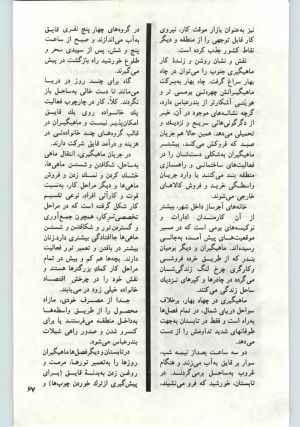 نیز به‌عنوان بازار موقت کار، نیروی
کار قابل توجهی را از منطقه و دیگر
نقاط کشور جذب کرده است.
نقش و نشان روشن و زندهٔ کار
ماهیگیری جنوب را می‌توان در چاه
بهار سراغ گرفت. چاه بهار به‌برکت
ماهیگیرانش چهره‌ئی بومی‌تر و
هویتی آشکارتر از بندرعباس دارد،
گرچه نشانه‌های موجود، از آن خبر
از دگرگونی‌هائی سریع و نزدیک و
تحمیلی می‌دهد. همین حالا هم هر یک
صید که فروکش می‌کند، بیشتر
ماهیگیران به‌شکلی دست‌شان را در
فعالیت‌های ساختمانی و راهسازی
منطقه بند می‌کنند یا به کار
واسطگی خرید و فروش کالاهای
خارجی می‌شوند.
خانه‌های آجرساز داخل شهر، بیشتر
از آن کارمندان ادارات و
نوکیسه‌های بومی است که در مسیر
موقعیت‌های پیش آمده به‌جائی
رسیده‌اند. ماهیگیران و دیگر بومیان
بندر که از طریق خرده فروشی و
وکارگری چرخ لنگ زندگی‌شان
می‌گردد در چادرها و کپرهای نزدیک
ساحل زندگی می‌کنند.
ماهیگیری در چاه بهار، برخلاف
سواحل دریای شمال، در تمام فصل‌ها
به‌راه است و فقط در تابستان به‌جهت
طوفان‌های شدید تداومش را از دست
می‌دهد.
دو سه ساعت بعداز نیمه شب،
سوار بر قایق به آب می‌زنند و هنگام
غروب به‌ساحل برمی‌گردند. در
تابستان، خورشید که فرو می‌نشیند،
در گروه‌های چهار پنج نفری قایق
به‌آب می‌اندازند و صبح از ساعت
پنج و شش، پس از سپیدی سحر و
طلوع خورشید راه بازگشت در پیش
می‌گیرند.
گاه برای چند روز در دریا
می‌مانند، تا دست خالی به‌ساحل باز
نگردند. کلاً، کار در چارچوب فعالیت
یک خانواده روی یک قایق
امکان‌پذیر نیست و ماهیگیران در
قالب گروه‌های چند خانواده‌ئی در
هزینه و درآمد قایق شرکت دارند.
در جریان ماهیگیری، انتقال ماهی
به‌ساحل، شکافتن و شستن ماهی‌ها،
خشک کردن و نمک زدن و فروش
ماهی‌ها و دیگر مراحل کار، به‌نسبت
قوت و کارآئی افراد، نوعی تقسیم
کار شکل گرفته است که در کارهای
تخصصی‌تر کار، همچون جمع‌آوری
و گستردن تور و شکافتن و شستن
ماهی‌ها جاافتادگی بیشتری دارد. زنان
بیشتر در بافتن و تعمیر تور فعالیت
دارند. بچه‌ها هم کم و بیش در تمام
مراحل کار کمک بزرگترها هستند و
نقش خود را در چرخش اقتصاد
خانواده خیلی زود در می‌یابند.
جدا از مصرف خودی، مازاد
محصول را از طریق واسطه‌ها
به‌داخل منطقه می‌فرستند یا برای
کنسرو شدن و صدور راهی شیلات
بندرعباس می‌شود.
در تابستان و دیگر فصل‌ها ماهیگیران
روزها را به‌تعمیر تورها، مرمت و
روغن زدن به‌بدنهٔ قایق (برای
پیش‌گیری از ترک خوردن چوب‌ها) و
۶۷